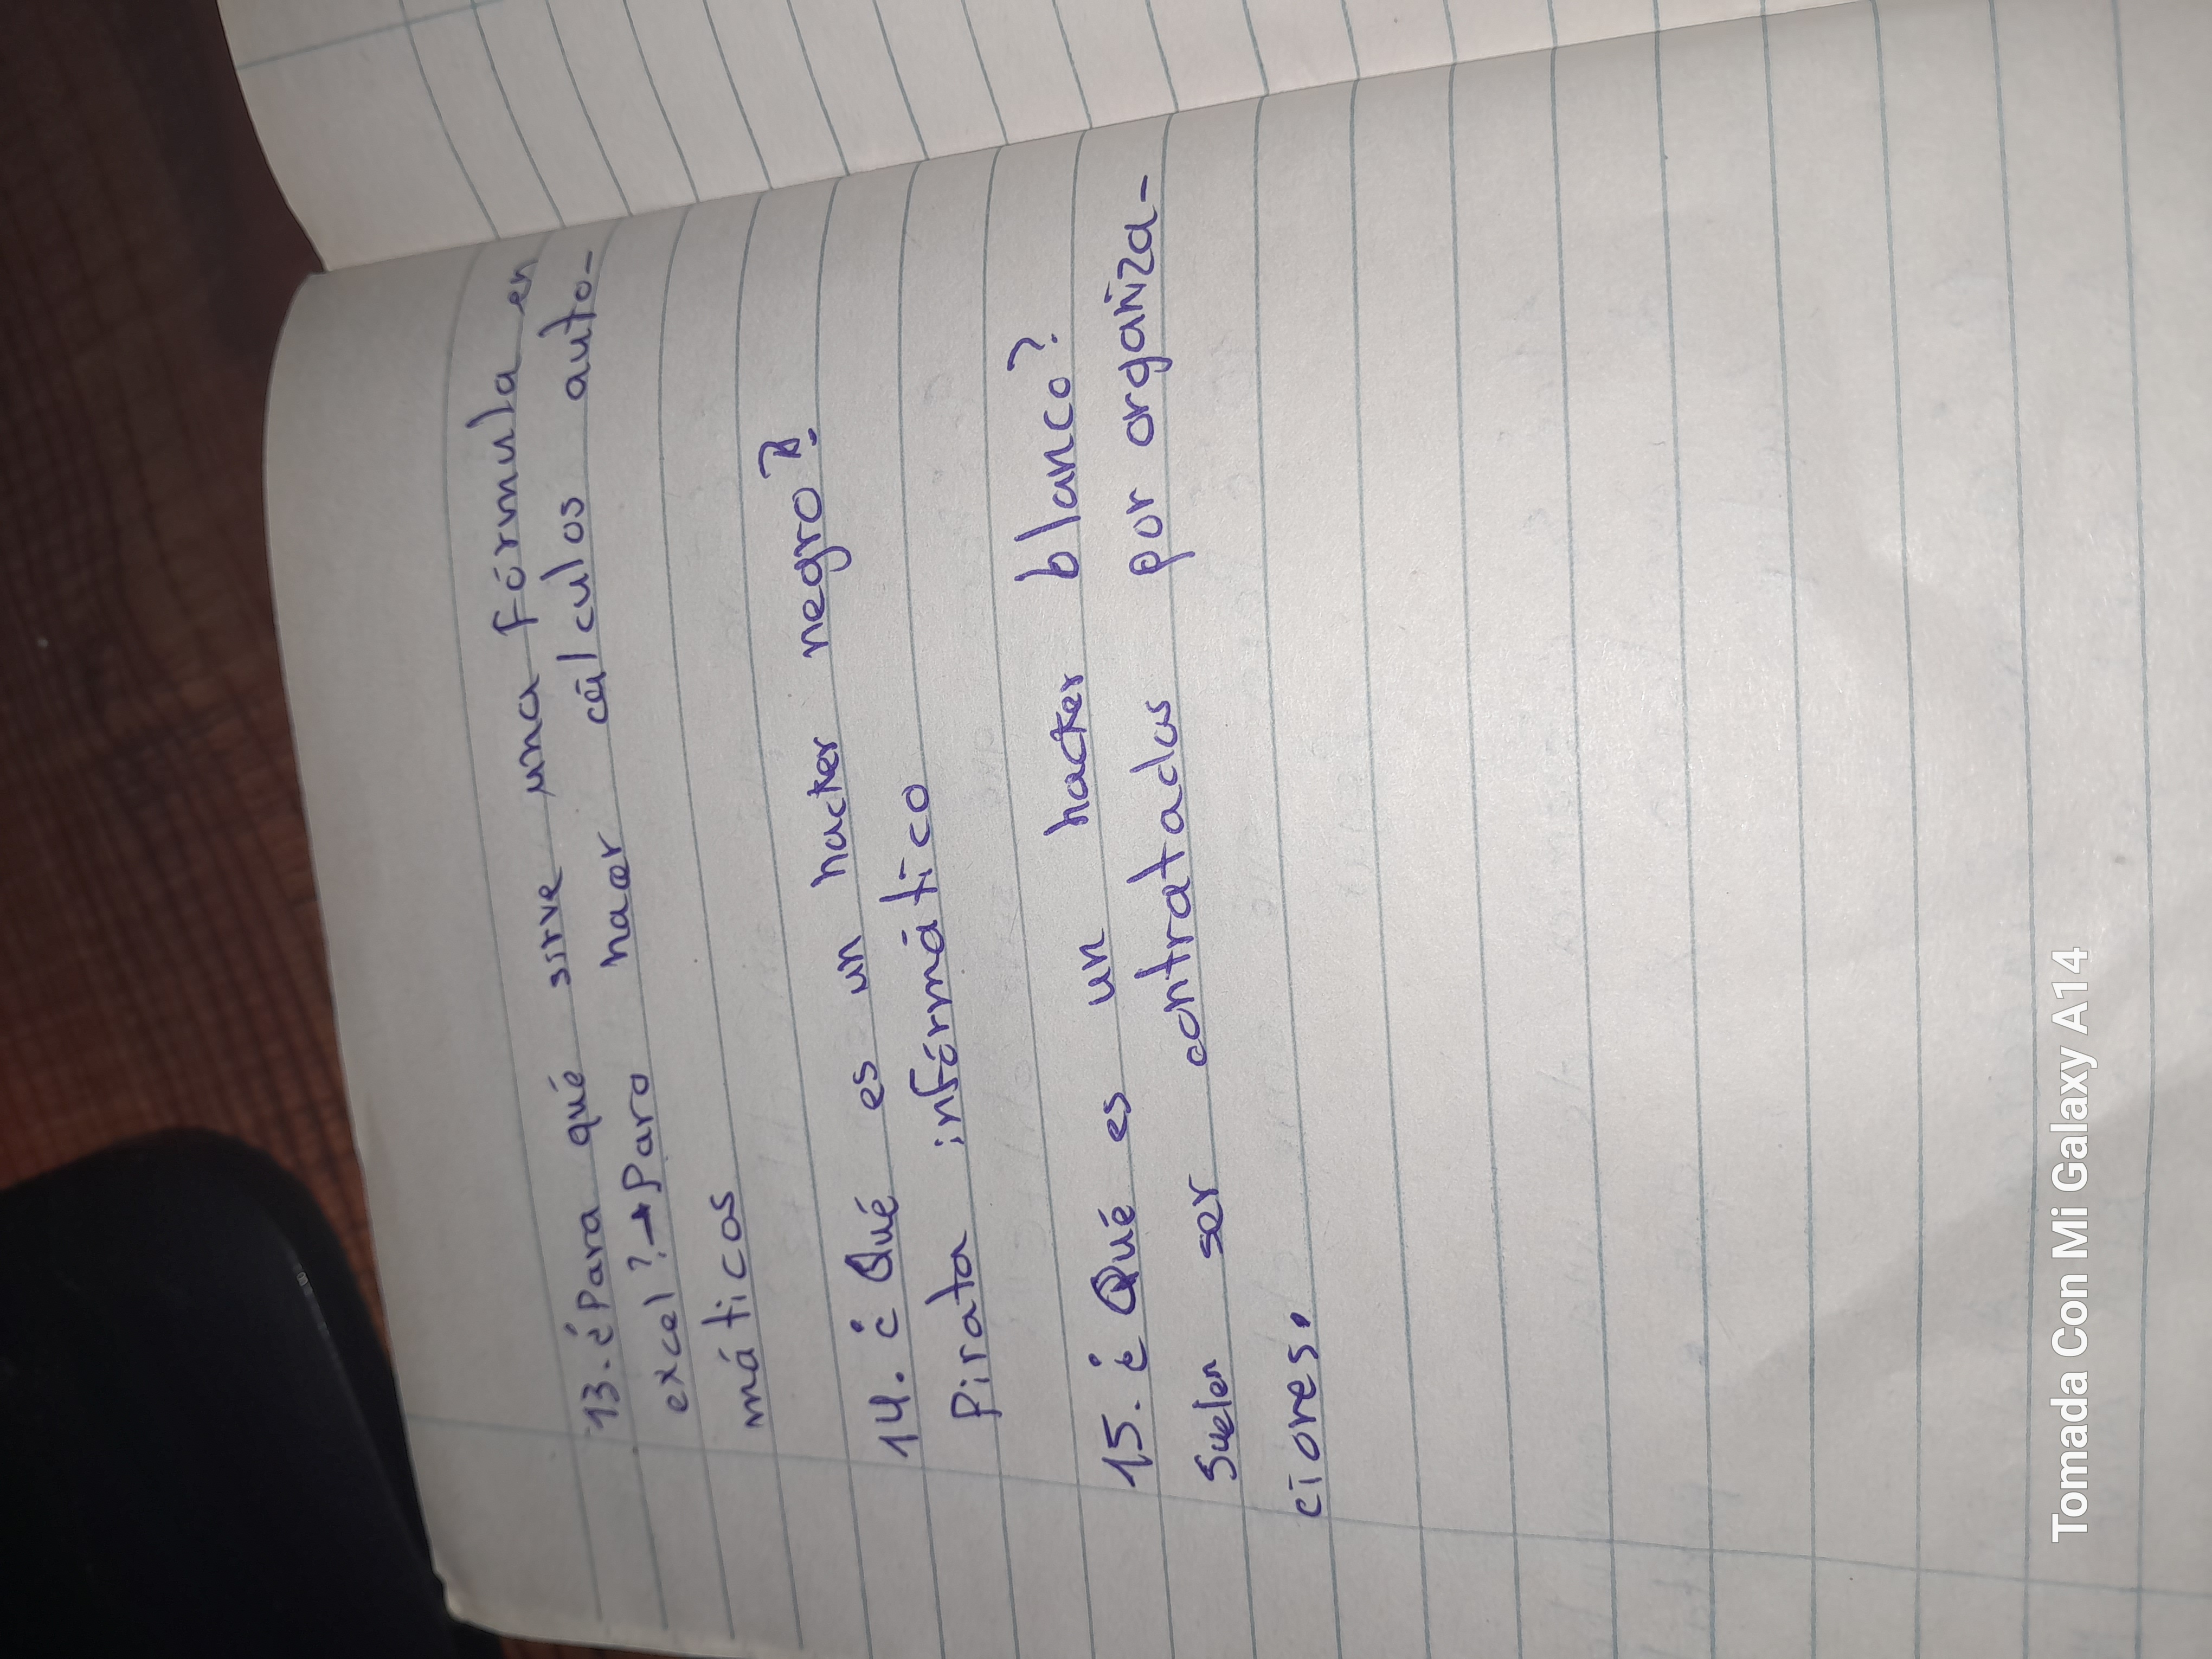 13. ¿Para qué sirve una fórmula en
excel? → Para hacer cálculos auto-
máticos
14. ¿Qué es un hacker negro?
Pirata infórmático
15. ¿Qué es un hacker blanco?
Suelen ser contratados por organiza-
ciones.
Tomada Con Mi Galaxy A14